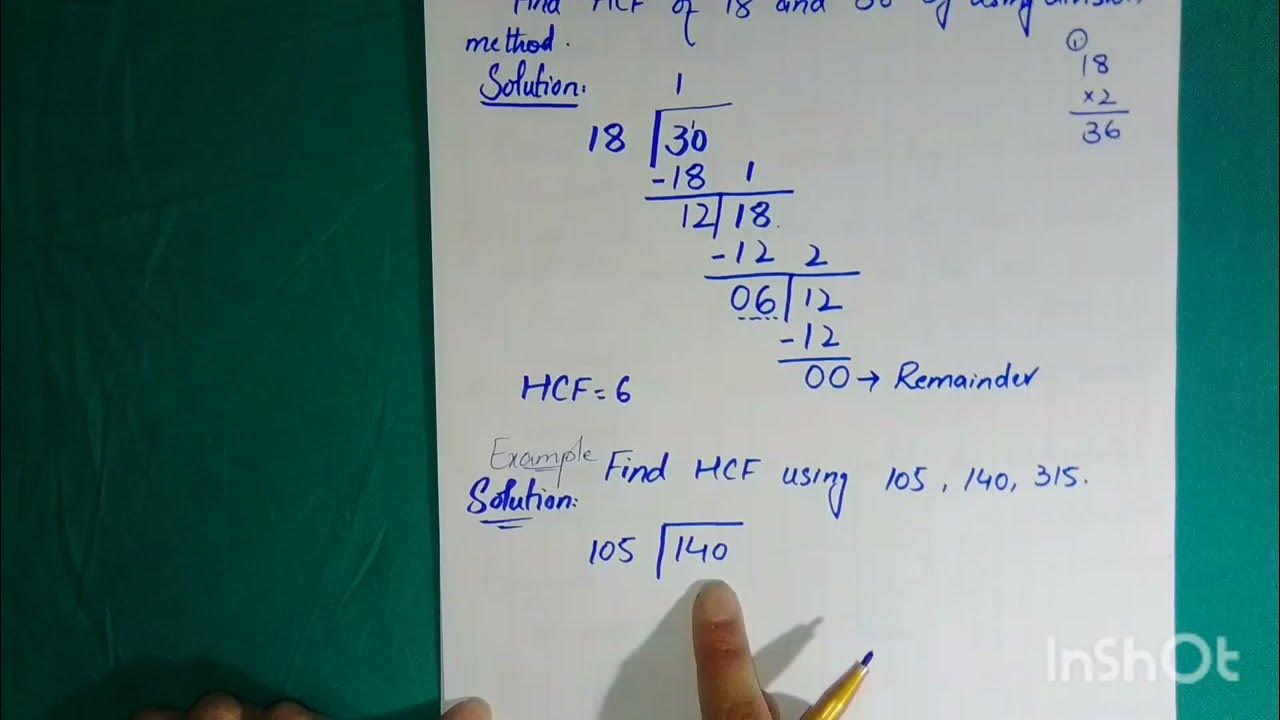 Find HCF of 18 and 30 by using division
method.
Solution:
1
18 30
-18 1
12 18
-12 2
06 12
-12
00 → Remainder
HCF = 6
1
18
×2
36
Example Find HCF using 105, 140, 315.
Solution:
105 140
InShOt